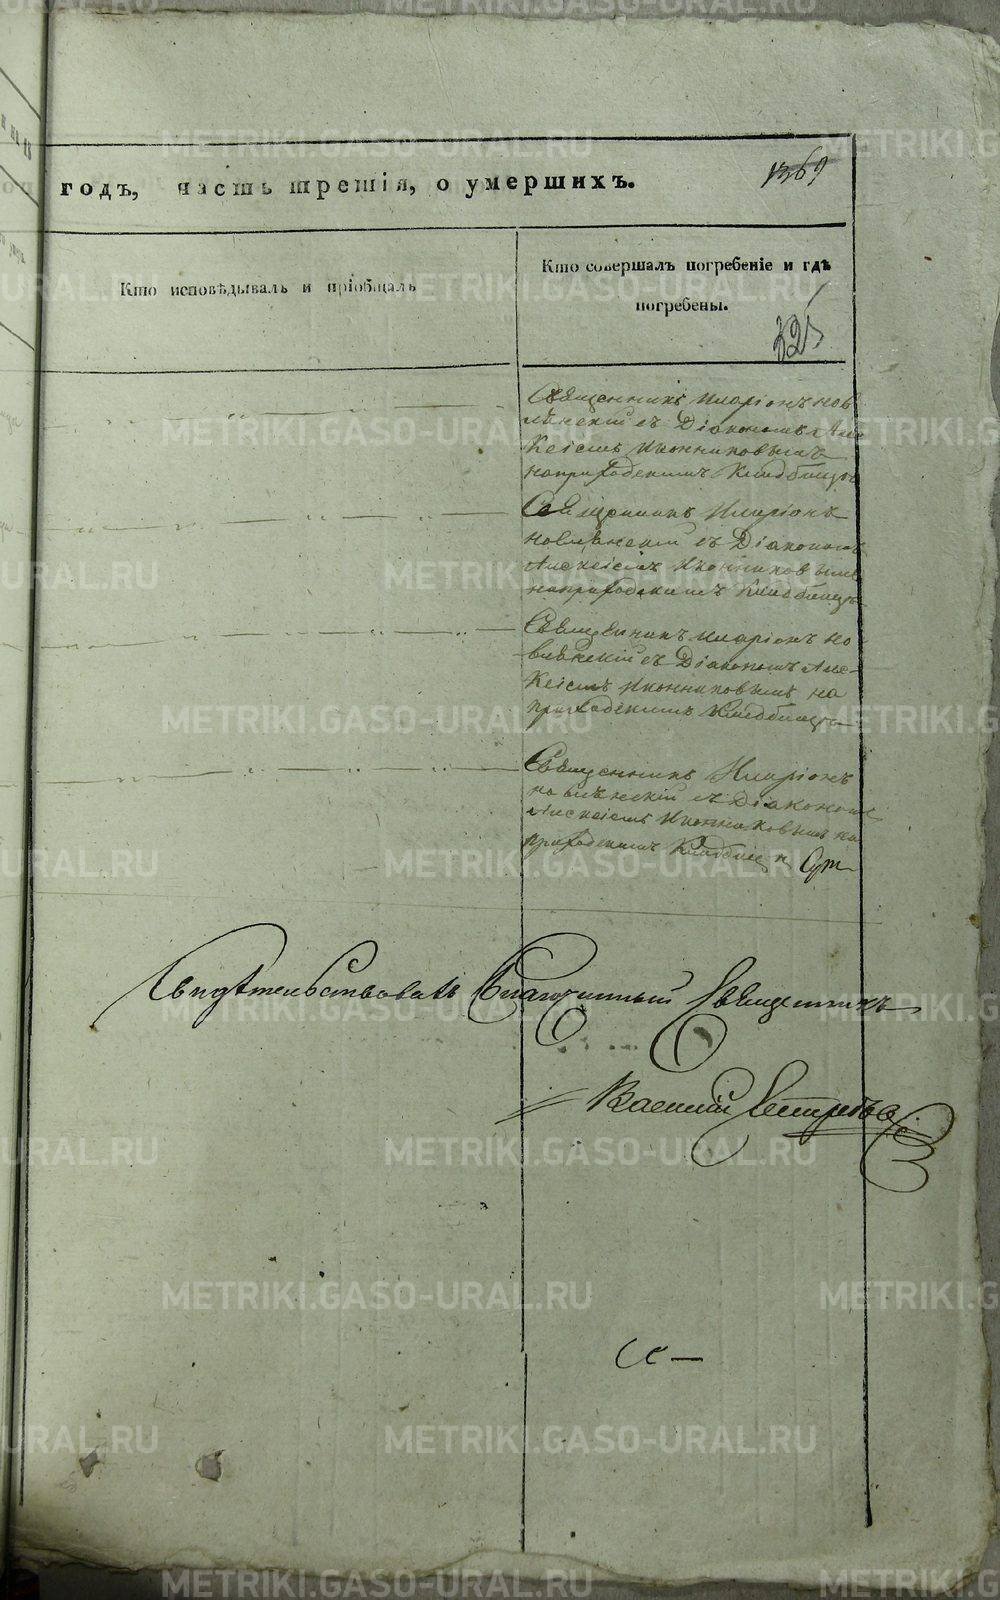 годъ, часть третія, о умершихъ.
1369
Кто исповѣдывалъ и пріобщалъ
Кто совершалъ погребеніе и гдѣ
погребены.
325
Священникъ Иларіонъ Нов
лѣнскій съ Діакономъ Але
Ксіемъ Иконниковымъ
наприходскомъ Кладбищѣ
Священникъ Иларіонъ
Новлѣнскій съ Діакономъ
Алексіемъ Иконниковымъ
наприходскомъ Кладбищѣ
Священникъ Иларіонъ Но
влѣнскій съ Діакономъ Але
Ксіемъ Иконниковымъ на
приходскомъ Кладбищѣ
Священникъ Иларіонъ
Новлѣнскій съ Діакономъ
Алексіемъ Иконниковымъ на
приходскомъ Кладбищѣ
Свидѣтельствовалъ Благочинный Священникъ
Василій
METRIKI.GASO-URAL.RU